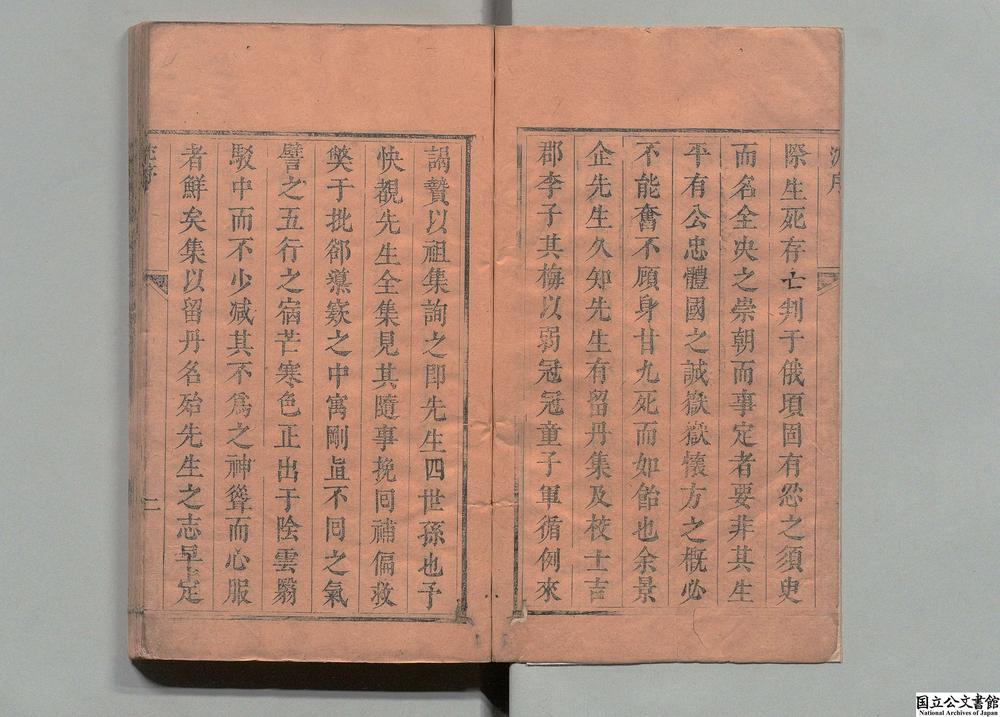 際生死存亡判于俄頃固有忍之須臾
而名全决之崇朝而事定者要非其生
平有公忠體國之誠嶽嶽懷方之概必
不能奮不顧身甘九死而如飴也余景
企先生久知先生有留丹集及校士吉
郡李子其梅以弱冠冠童子軍循例來
謁贄以祖集詢之即先生四世孫也予
快覩先生全集見其隨事挽囘補偏救
獘于批郤導窾之中寓剛直不囘之氣
譬之五行之宿芒寒色正出于陰雲翳
駮中而不少減其不爲之神聳而心服
者鮮矣集以留丹名殆先生之志早定
二
国立公文書館
National Archives of Japan